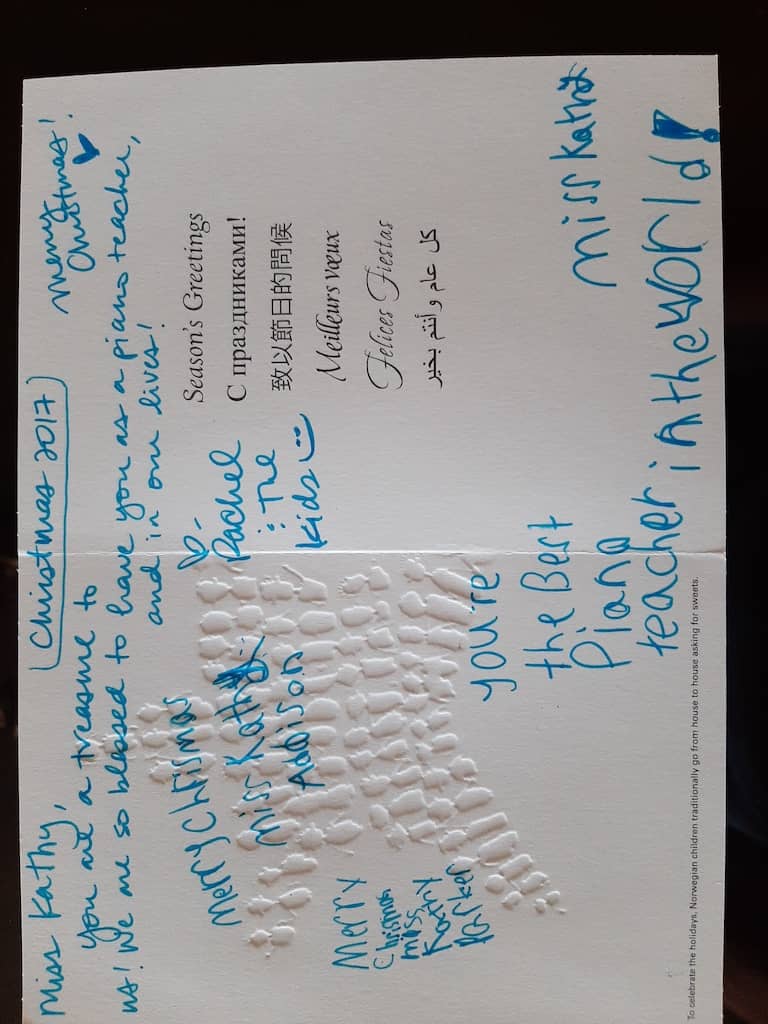 Christmas 2017
Miss Kathy,
You are a treasure to
us! We are so blessed to have you as a piano teacher,
and in our lives!
Merry
Christmas!
Rachel
: The
Kids
Season's Greetings
С праздниками!
致以節日的問候
Meilleurs vœux
Felices Fiestas
كل عام وأنتم بخير
Merry Chrismas
Miss Kathy
Addison
Merry
Chrismas
miss
Kathy
Parker
you're
the Best
Piano
teacher in the world!
Miss Kathy
To celebrate the holidays, Norwegian children traditionally go from house to house asking for sweets.